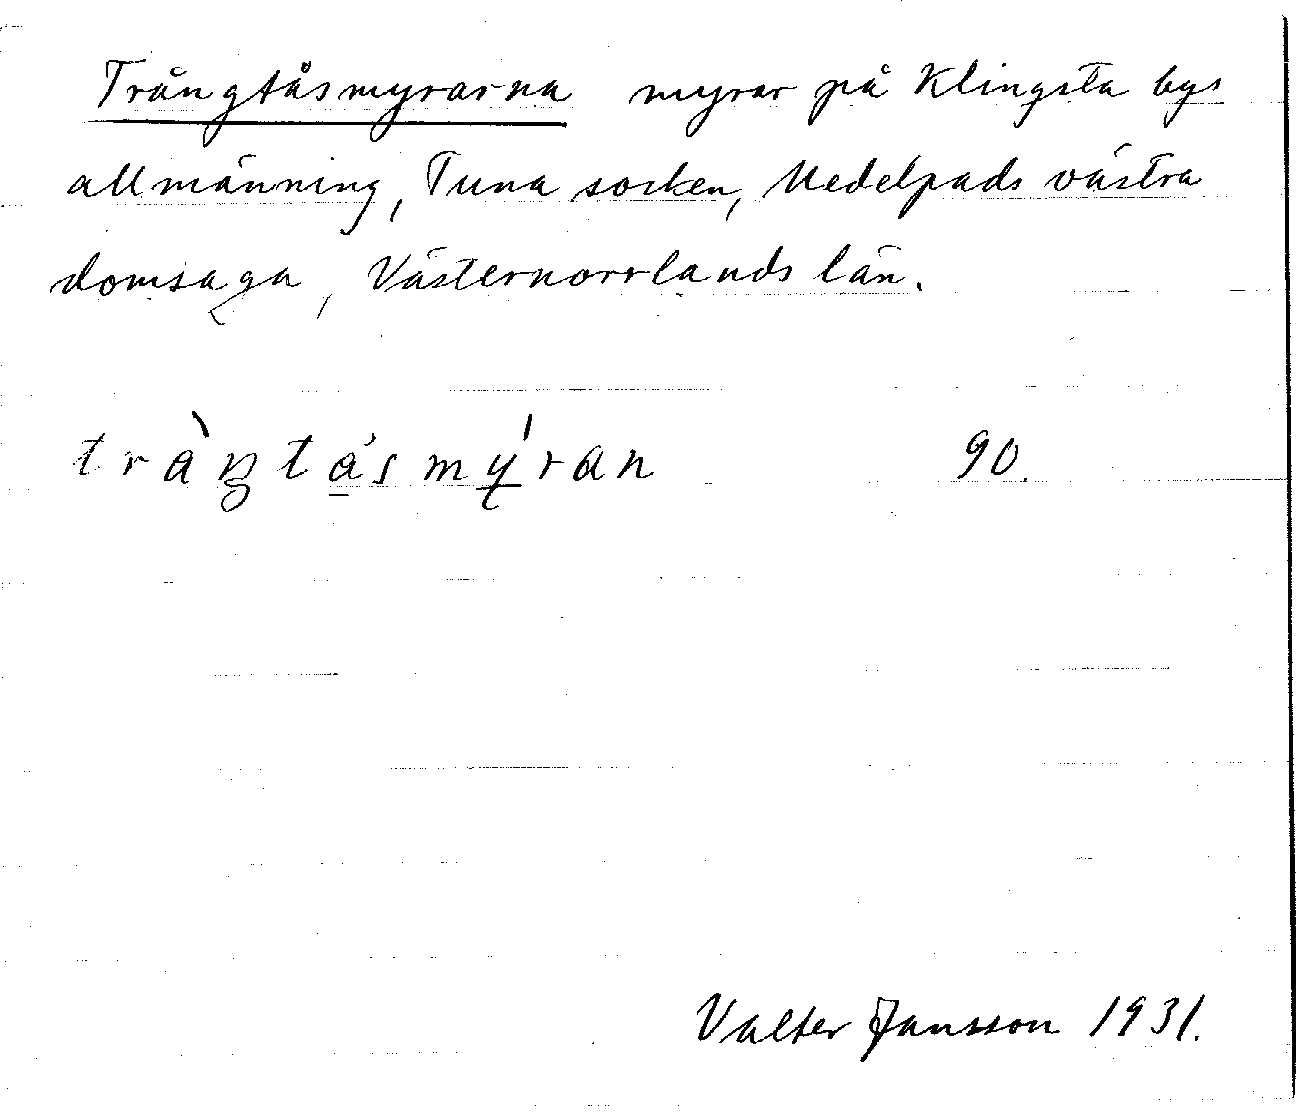 Trångtåsmyrarna myrar på Klingsta bys
allmänning, Tuna socken, Medelpads västra
domsaga, Västernorrlands län.
tràŋtåsmýran 90.
Valter Jansson 1931.